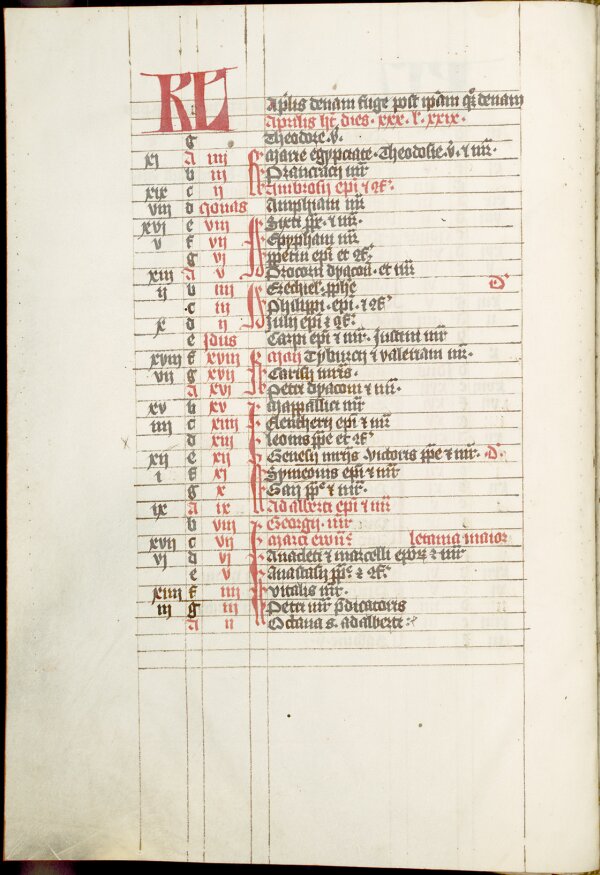 KL Aprilis denam fuge post ipsam qr denam
Aprilis ht dies. xxx. l. xxix.
g Theodore. v.
xi A iiii Marie egypciace. Theodosie. v. et mr.
b iii Prancracii mr
xix c ii Ambrosii epi et 9f.
viii d Nonas Ampliani mr
xvi e viii Syxti ppe. et mr.
v f vii Epyphani mr
g vi epi et 9f.
xiii A v Procori dyaconi. et mr
ii b iiii Ezechiel. pphe D
c iii Philippi. epi. et 9f.
x d ii Julii epi et 9f.
e Idus Carpi epi et mr. Justini mr
xviii f xviii Maii Tyburcii et valeriani mr.
vii g xvii Carisii mris.
A xvi Petri dyaconi et mr.
xv b xv Mappallici mr
iiii c xiiii Eleutherii epi et mr
d xiii Leonis ppe et 9f
xii e xii Senesii mris. Victoris ppe et mr. D.
i f xi Symeonis epi et mr
g x Gaii ppe et mr.
ix A ix Adalberti epi et mr
b viii Georgii. mr
xvii c vii Marci ewn letania maior
vi d vi Anacleti et marcelli epor et mr
e v Anastasii ppe. et 9f.
xiiii f iiii Vitalis mr.
iii g iii Petri mr pdicatoris
A ii Octava s. adalberti